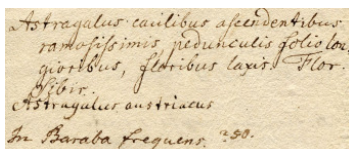 Astragalus caulibus ascendentibus
ramosissimis, pedunculis folio lon,
gioribus, floribus laxis. Flor.
Sibir.
Astragalus austriacus
In Baraba frequens. 250.